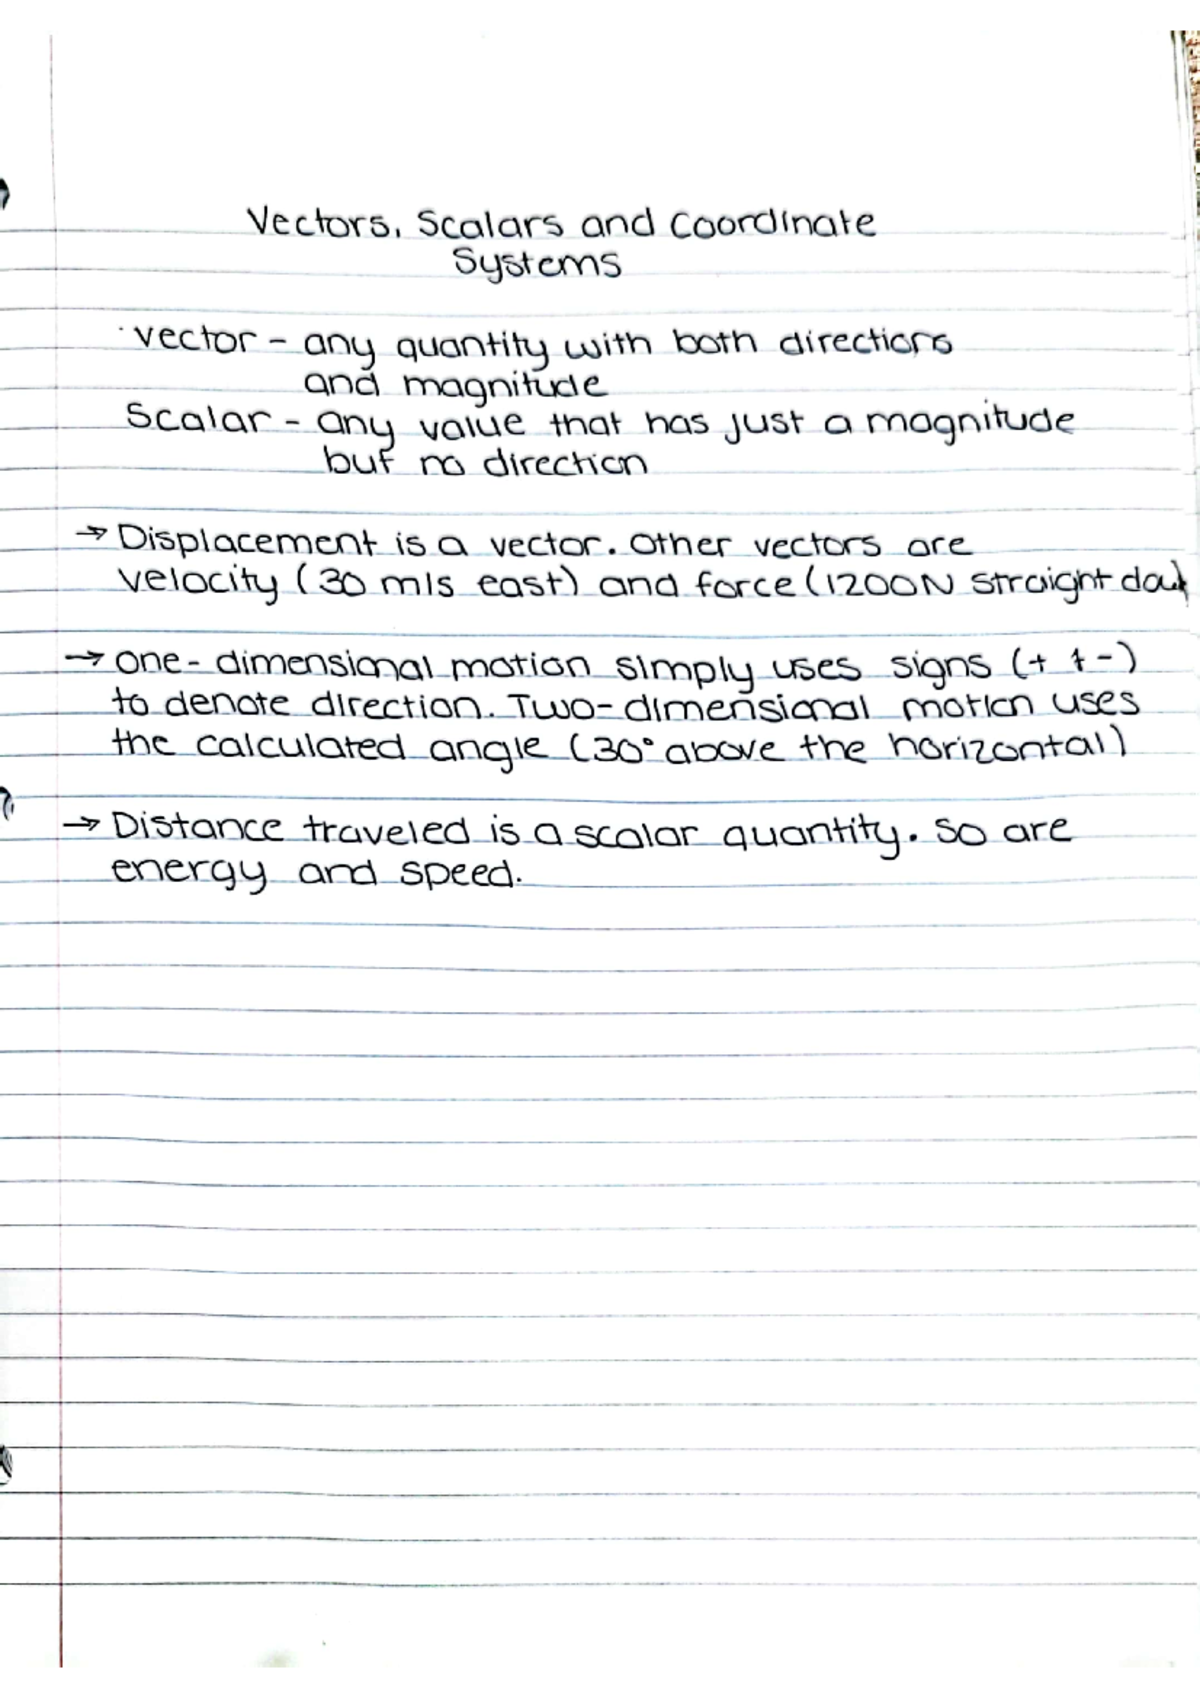 Vectors, Scalars and Coordinate
Systems
· vector - any quantity with both directions
and magnitude
Scalar - any value that has just a magnitude
but no direction
→ Displacement is a vector. Other vectors are
velocity (30 m/s east) and force (1200N straight
→ one-dimensional motion simply uses signs (+ + -)
to denote direction. Two-dimensional motion uses
the calculated angle (30° above the horizontal)
→ Distance traveled is a scalar quantity. So are
energy and speed.